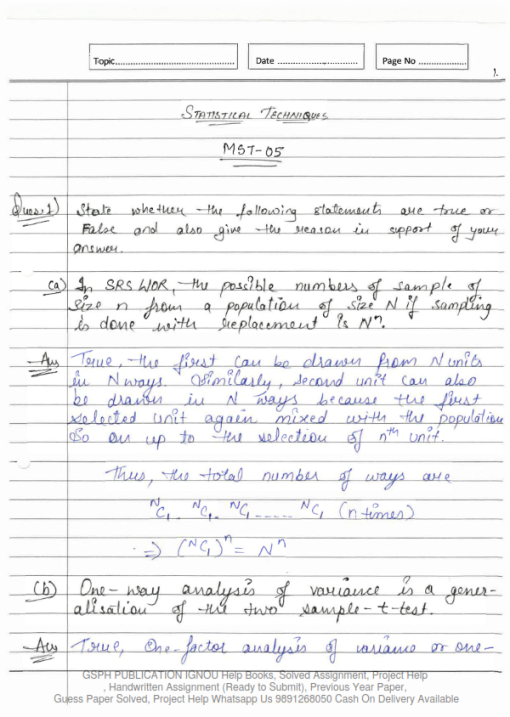 Topic................................................
Date ................................
Page No ....................
1.
STATISTICAL TECHNIQUES
MST-05
Ques.1) State whether the following statements are true or
False and also give the reason in support of your
answer.
(a) In SRSWOR, the possible numbers of sample of
size n from a population of size N if sampling
is done with replacement is Nⁿ.
Ans True, the first can be drawn from N units
in N ways. Similarly, second unit can also
be drawn in N ways because the first
selected unit again mixed with the population
So on up to the selection of nᵗʰ unit.
Thus, the total number of ways are
ᴺC₁ ᴺC₁. ᴺC₁ ----- ᴺC₁ (n times)
⇒ (ᴺC₁)ⁿ = Nⁿ
(b) One-way analysis of variance is a gener-
alisation of the two sample-t-test.
Ans True, One-factor analysis of variance or one-
GSPH PUBLICATION IGNOU Help Books, Solved Assignment, Project Help
, Handwritten Assignment (Ready to Submit), Previous Year Paper,
Guess Paper Solved, Project Help Whatsapp Us 9891268050 Cash On Delivery Available